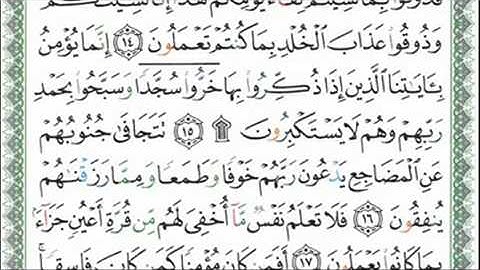 فَذُوقُوا۟ بِمَا نَسِيتُمْ لِقَآءَ يَوْمِكُمْ هَٰذَآ إِنَّا نَسِينَٰكُمْ
وَذُوقُوا۟ عَذَابَ ٱلْخُلْدِ بِمَا كُنتُمْ تَعْمَلُونَ ١٤ إِنَّمَا يُؤْمِنُ
بِـَٔايَٰتِنَا ٱلَّذِينَ إِذَا ذُكِّرُوا۟ بِهَا خَرُّوا۟ سُجَّدًا وَسَبَّحُوا۟ بِحَمْدِ
رَبِّهِمْ وَهُمْ لَا يَسْتَكْبِرُونَ ۩ ١٥ تَتَجَافَىٰ جُنُوبُهُمْ
عَنِ ٱلْمَضَاجِعِ يَدْعُونَ رَبَّهُمْ خَوْفًا وَطَمَعًا وَمِمَّا رَزَقْنَٰهُمْ
يُنفِقُونَ ١٦ فَلَا تَعْلَمُ نَفْسٌ مَّآ أُخْفِىَ لَهُم مِّن قُرَّةِ أَعْيُنٍ جَزَآءًۢ
بِمَا كَانُوا۟ يَعْمَلُونَ ١٧ أَفَمَن كَانَ مُؤْمِنًا كَمَن كَانَ فَاسِقًا ۚ